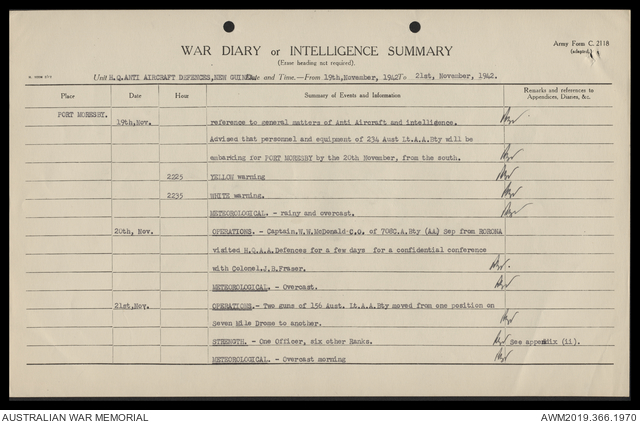 Army Form C. 2118
(adapted)
WAR DIARY or INTELLIGENCE SUMMARY
(Erase heading not required).
Unit H.Q.ANTI AIRCRAFT DEFENCES,NEW GUINEA Date and Time.—From 19th,November, 1942 To 21st, November, 1942.
Place Date Hour Summary of Events and Information Remarks and references to Appendices, Diaries, &c.
PORT MORESBY.
19th,Nov. reference to general matters of Anti Aircraft and intelligence.
Advised that personnel and equipment of 234 Aust Lt.A.A.Bty will be
embarking for PORT MORESBY by the 20th November, from the south.
2225 YELLOW warning
2235 WHITE warning.
METEOROLOGICAL. - rainy and overcast.
20th, Nov. OPERATIONS. - Captain.W.W.McDonald C.O. of 708C.A.Bty (AA) Sep from RORONA
visited H.Q.A.A.Defences for a few days for a confidential conference
with Colonel.J.B.Fraser.
METEOROLOGICAL. - Overcast.
21st,Nov. OPERATIONS.- Two guns of 156 Aust. Lt.A.A.Bty moved from one position on
Seven Mile Drome to another.
STRENGTH. - One Officer, six other Ranks. See appendix (ii).
METEOROLOGICAL. - Overcast morning
AUSTRALIAN WAR MEMORIAL AWM2019.366.1970